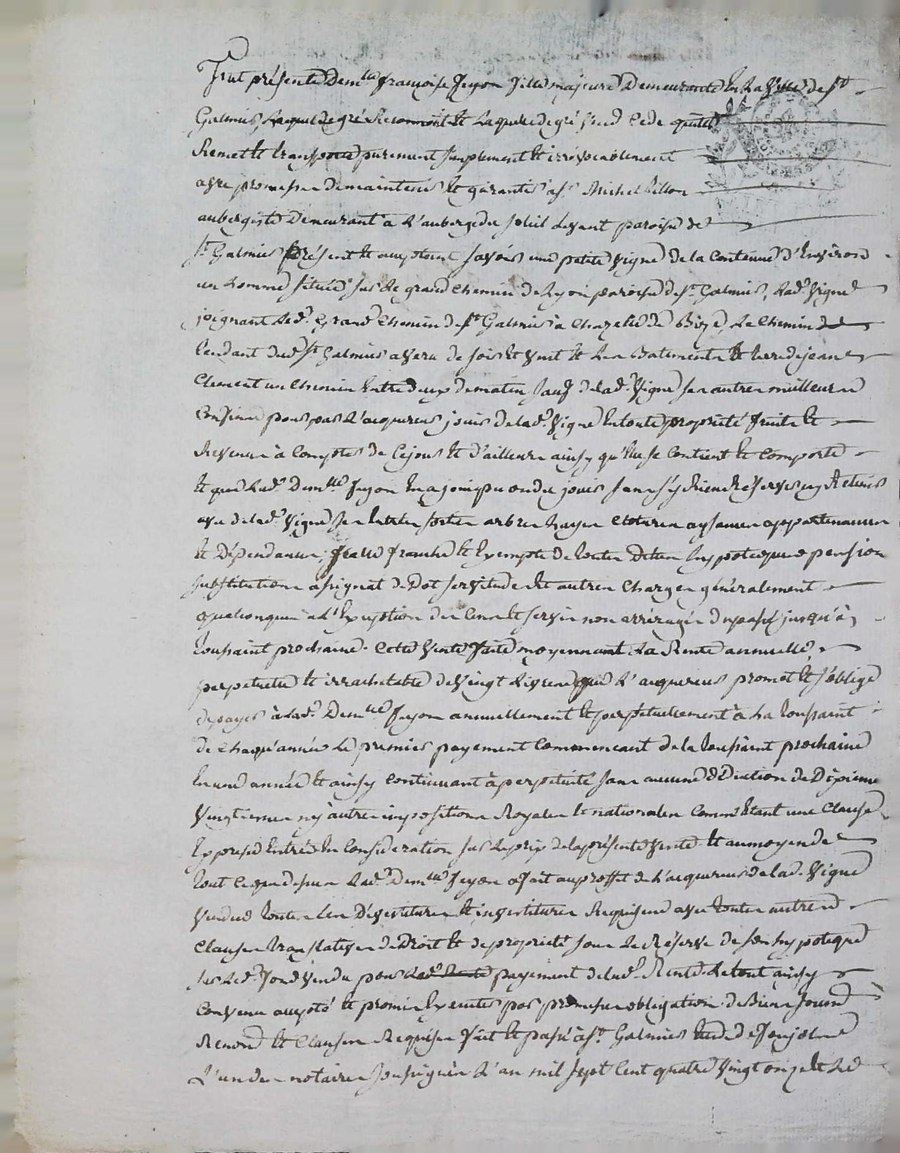 Fut présente Dem.lle françoise Juyon fille majeure Demeurante En La Ville de St
Galmier, Laquelle de gré Reconnoit et Laquelle de gré vend Cede quitte
Remet et transporte purement simplement et irrévocablement
avec promesse de maintenir et garantir à sr. Michel
aubergiste Demeurant à L'auberge du soleil Levant paroisse de
St. Galmier présent et acceptant savoir une petite vigne de la Contenue d'Environ
un homme située sur Le grand chemin de Lyon paroisse de St. Galmier, Lad. Vigne
joignant Led. Grand Chemin de St. Galmier à Chazelle de Bize, Le Chemin
tendant dud. St. Galmier a de soir et vent et Les Batiments et terre de jean
Clement un Chemin Entre deux de matin, sauf de lad. Vigne ses autres meilleures
Confins pour par L'acquereur jouir de lad. Vigne En toute propriété fruits et
Revenus à Compter de Ce jour et d'ailleurs ainsy qu'Elle se Contient et Comporte
et que Lad. Dem.lle Juyon En a joui pu ou du jouir sans s'y Rien Réserver ny Retenir
avec de lad. Vigne ses Entrées sorties arbres hayes Clotures aysances appartenances
et Dépendances, Icelle franche et Exempte de toutes Dettes hypoteques pension
substitution assignat de Dot servitude et autres Charges généralement
quelconques a l'Exception des Cens et servis non arréragés du passé jusqu'à
toussaint prochaine. Cette Vente faite moyennant La Rente annuelle,
perpetuelle et irrachetable de Vingt Livres que L'acquereur promet et s'oblige
de payer à Lad. Dem.lle Juyon annuellement et perpétuellement à La toussaint
de Chaque année Le premier payement Commencant de la toussaint prochaine
En une année et ainsy Continuant à perpetuité sans aucune déduction de Dixieme
Vingtiemes ny autres impositions Royales et nationales Comme Etant une Clause
Expresse Entrée En Consideration sur Le prix de la présente Vente et au moyen de
tout Ce que dessus Lad. Dem.lle Juyon a fait au proffit de L'acquereur de lad. Vigne
Vendue toutes Les Dévestitures et investitures Requises avec toutes autres
Clauses translatives de Droit et de propriété sous La Réserve de son hypoteque
sur Led. fond Vendu pour payement de lad. Rente. Le tout ainsy
Convenu accepté et promis Executer par promesse obligation de Biens soumd.
Renond. et Clauses Requises. fait et passé à St. Galmier
L'un des notaires soussignés L'an mil sept Cent quatre Vingt onze et Le